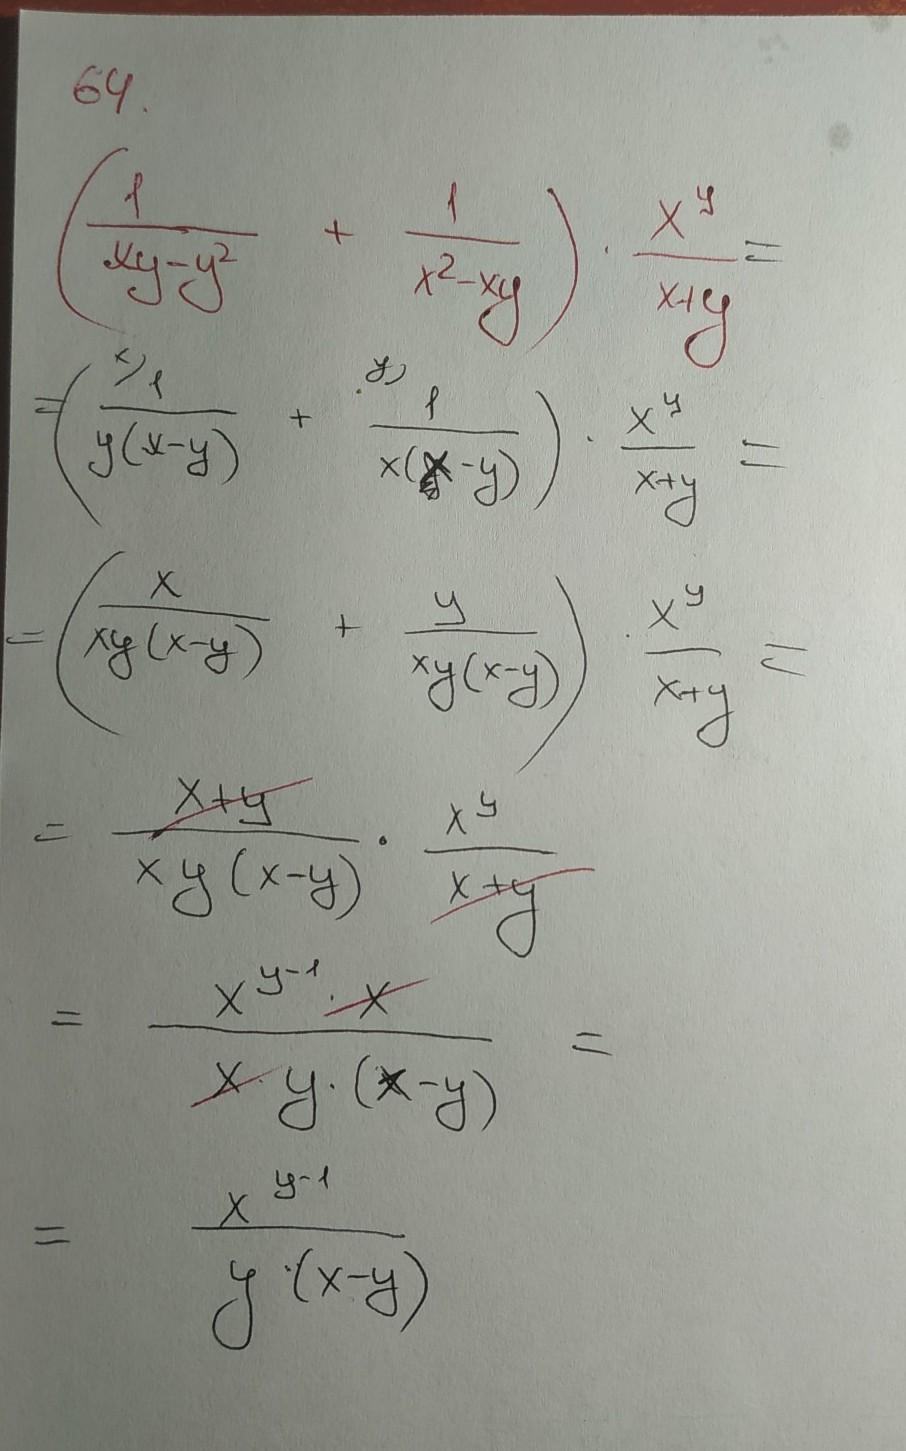 64.
(1/(xy-y²) + 1/(x²-xy)) · x^y/(x+y) =
= (x) 1/(y(x-y)) + y) 1/(x(x-y))) · x^y/(x+y) =
= (x/(xy(x-y)) + y/(xy(x-y))) · x^y/(x+y) =
= (x+y)/(xy(x-y)) · x^y/(x+y)
= (x^(y-1) · x)/(x · y · (x-y)) =
= x^(y-1)/(y · (x-y))